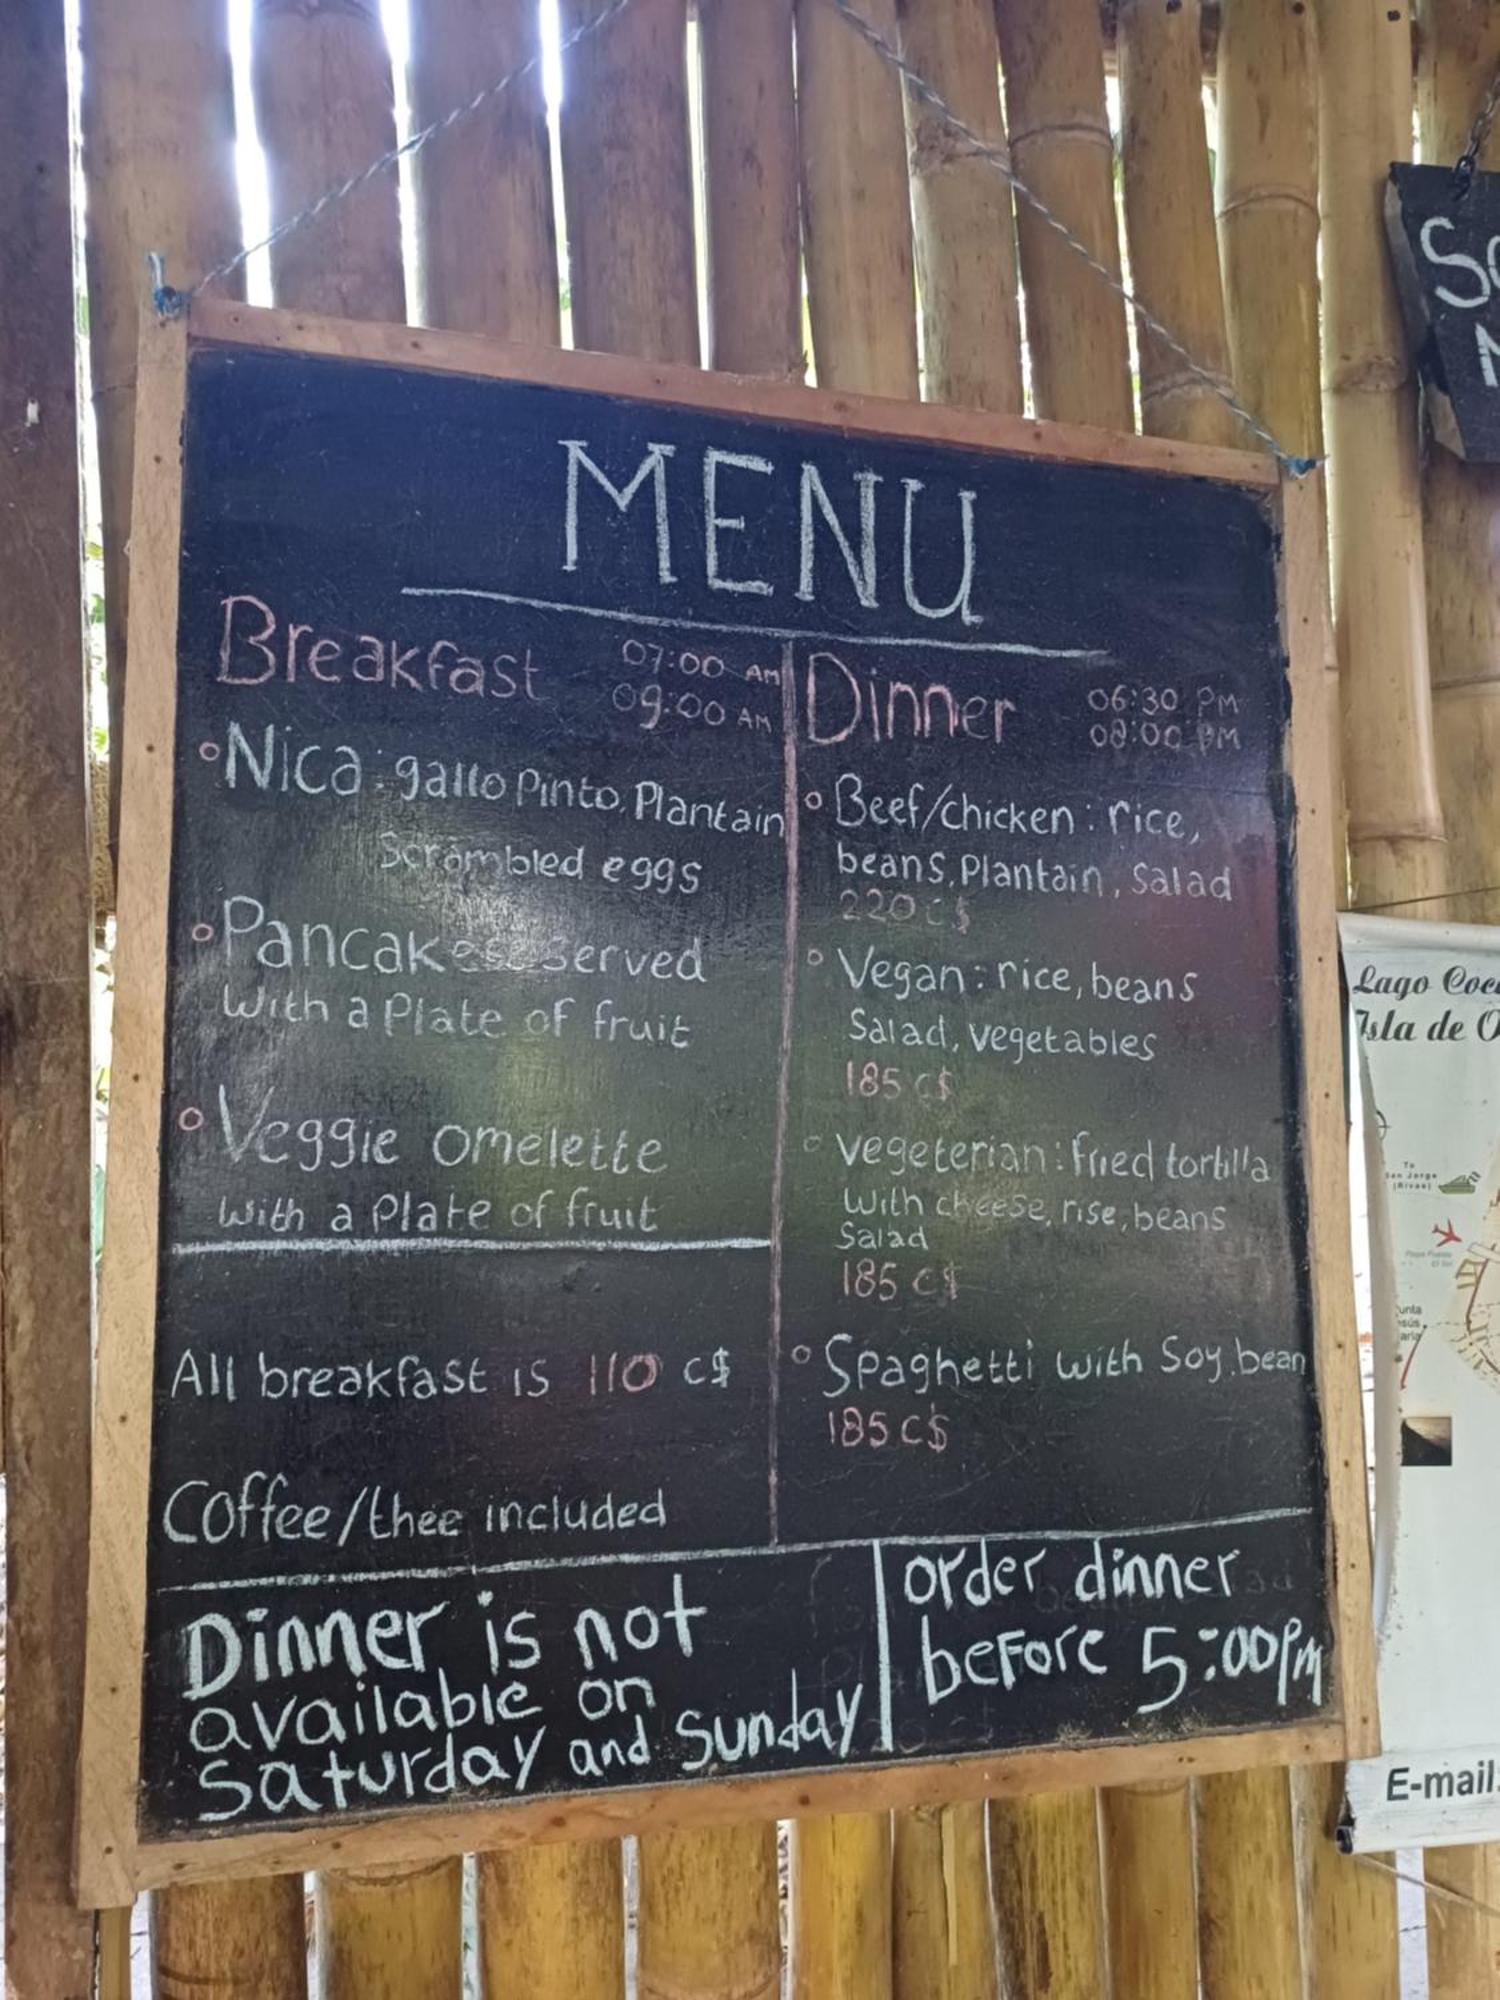 MENU
Breakfast 07:00 AM
09:00 AM
Nica: gallo Pinto, Plantain
Scrambled eggs
Pancakes served
With a Plate of fruit
Veggie omelette
With a Plate of fruit
All breakfast is 110 C$
Coffee/thee included
Dinner 06:30 PM
08:00 PM
Beef/chicken: rice,
beans, Plantain, Salad
220 C$
Vegan: rice, beans
Salad, vegetables
185 C$
vegeterian: fried tortilla
With cheese, rise, beans
Salad
185 C$
Spaghetti with Soy.bean
185 C$
Dinner is not
available on
Saturday and Sunday
order dinner
before 5:00Pm
Lago Coc
Isla de O
To
San Jorge
(Rivas)
E-mail: